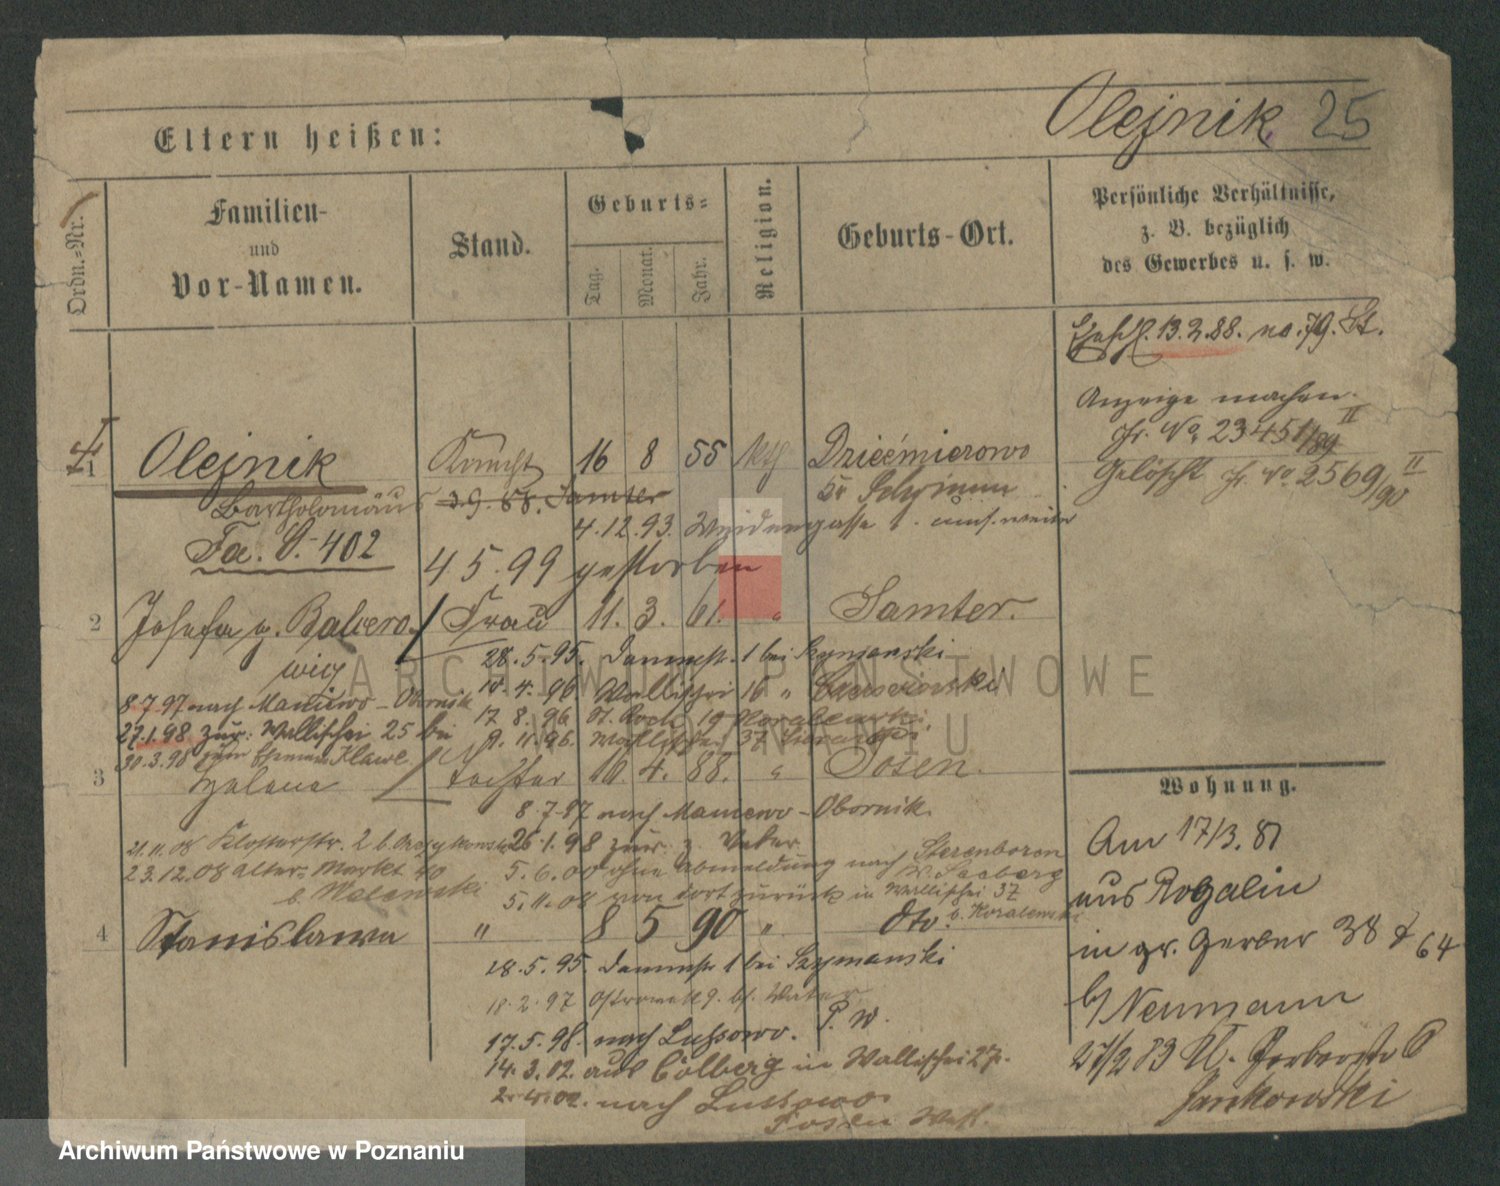 Olejnik 25
Eltern heißen:
Ordn.-Nr.
Familien-
und
Vor-Namen.
Stand.
Geburts-
Tag.
Monat.
Jahr.
Religion.
Geburts-Ort.
Persönliche Verhältnisse,
z. B. bezüglich
des Gewerbes u. s. w.
13.2.88. no. 79. St.
Anzeige machen.
Jr. No. 23451/89 II
Gelöscht Jr. No 2569/90 II
1 Olejnik Knecht 16 8 55 kth Dziećmierowo
Bartholomäus 3.9.88. Samter Kr Schrimm
4.12.93. Weidengasse 1.
Fa. S. 402
4 5 99 gestorben
2 Josefa g. Balcero- Frau 11. 3. 61. " Samter.
wicz
28.5.95. Dammstr. 1 bei Szymanski
10.4.96. Wallischei 16 "
8.7.97 nach Maniewo - Obornik
17 8. 96 St. Roch 19
27.1.98 zur: Wallischei 25 bei
9. 11. 96. Wallischei 37
30.3.98 zum Ehemann Klawe.
3 Helena Tochter 10. 4. 88. " Posen.
8.7.97 nach Maniewo - Obornik.
21.11.08 Klosterstr. 2 b.
26.1.98 zur. z. Vater
23.12.08 alter Markt 40
5.6.00 ohne Abmeldung nach
5.11.08 von dort zurück in Wallischei 37
4 Stanislawa " 8 5 90 " dto.
28.5.95. Dammstr 1 bei Szymanski
18.2.97 Ostrowek 9. bf. Vater
17.5.98. nach Lussowo. P. W.
14.3.02. aus Colberg in Wallischei 27.
2.4.02. nach Lussowo
Posen West.
Wohnung.
Am 17/3.81
aus Rogalin
in gr. Gerber 38 & 64
b/ Neumann
27/2 83 Kl. Gerberstr 6
Jankowski
ARCHIWUM PAŃSTWOWE
W POZNANIU
Archiwum Państwowe w Poznaniu